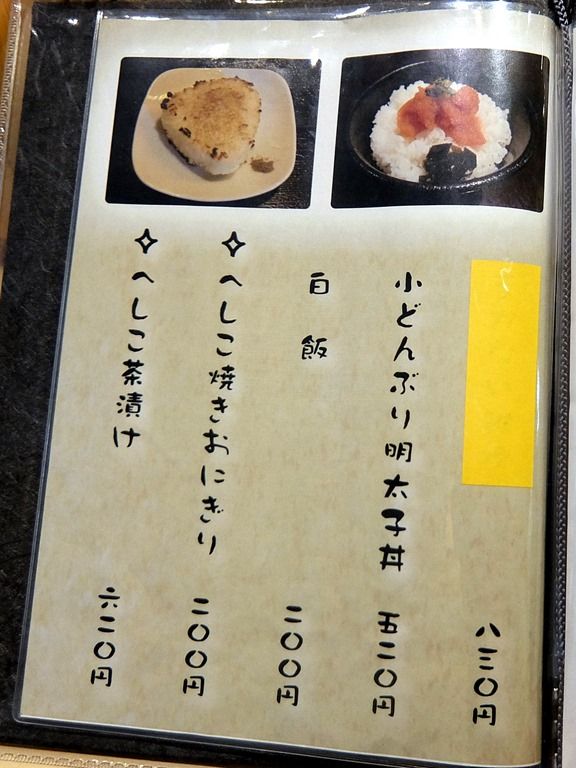 八三〇円
小どんぶり明太子丼 五二〇円
白飯 二〇〇円
✧へしこ焼きおにぎり 二〇〇円
✧へしこ茶漬け 六二〇円